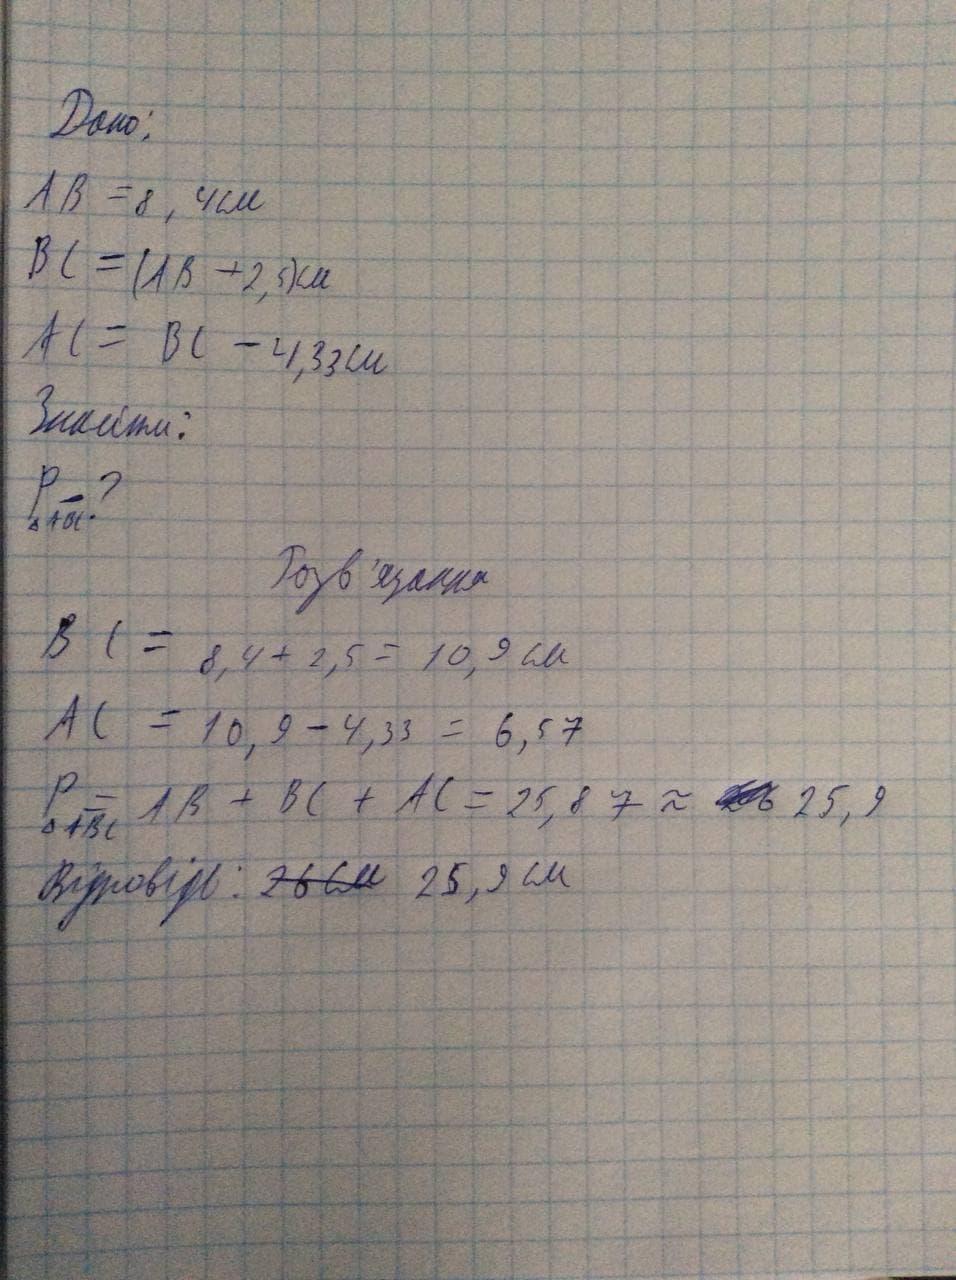 Дано:
AB = 8,4см
BC = (AB + 2,5)см
AC = BC - 4,33см
Знайти:
P△ABC - ?
Розв'язання
BC = 8,4 + 2,5 = 10,9 см
AC = 10,9 - 4,33 = 6,57
P△ABC = AB + BC + AC = 25,87 ≈ 25,9
Відповідь: 26 см 25,9 см